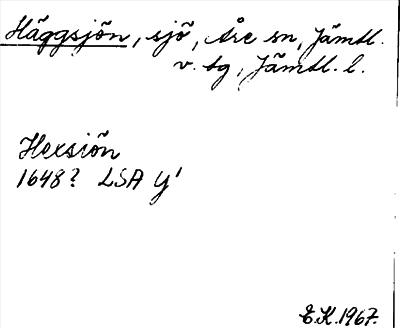 Häggsjön, sjö, Åre sn, Jämtl.
v. tg, Jämtl. l.
Hexsiön
1648? LSA Y'
E.K. 1967.